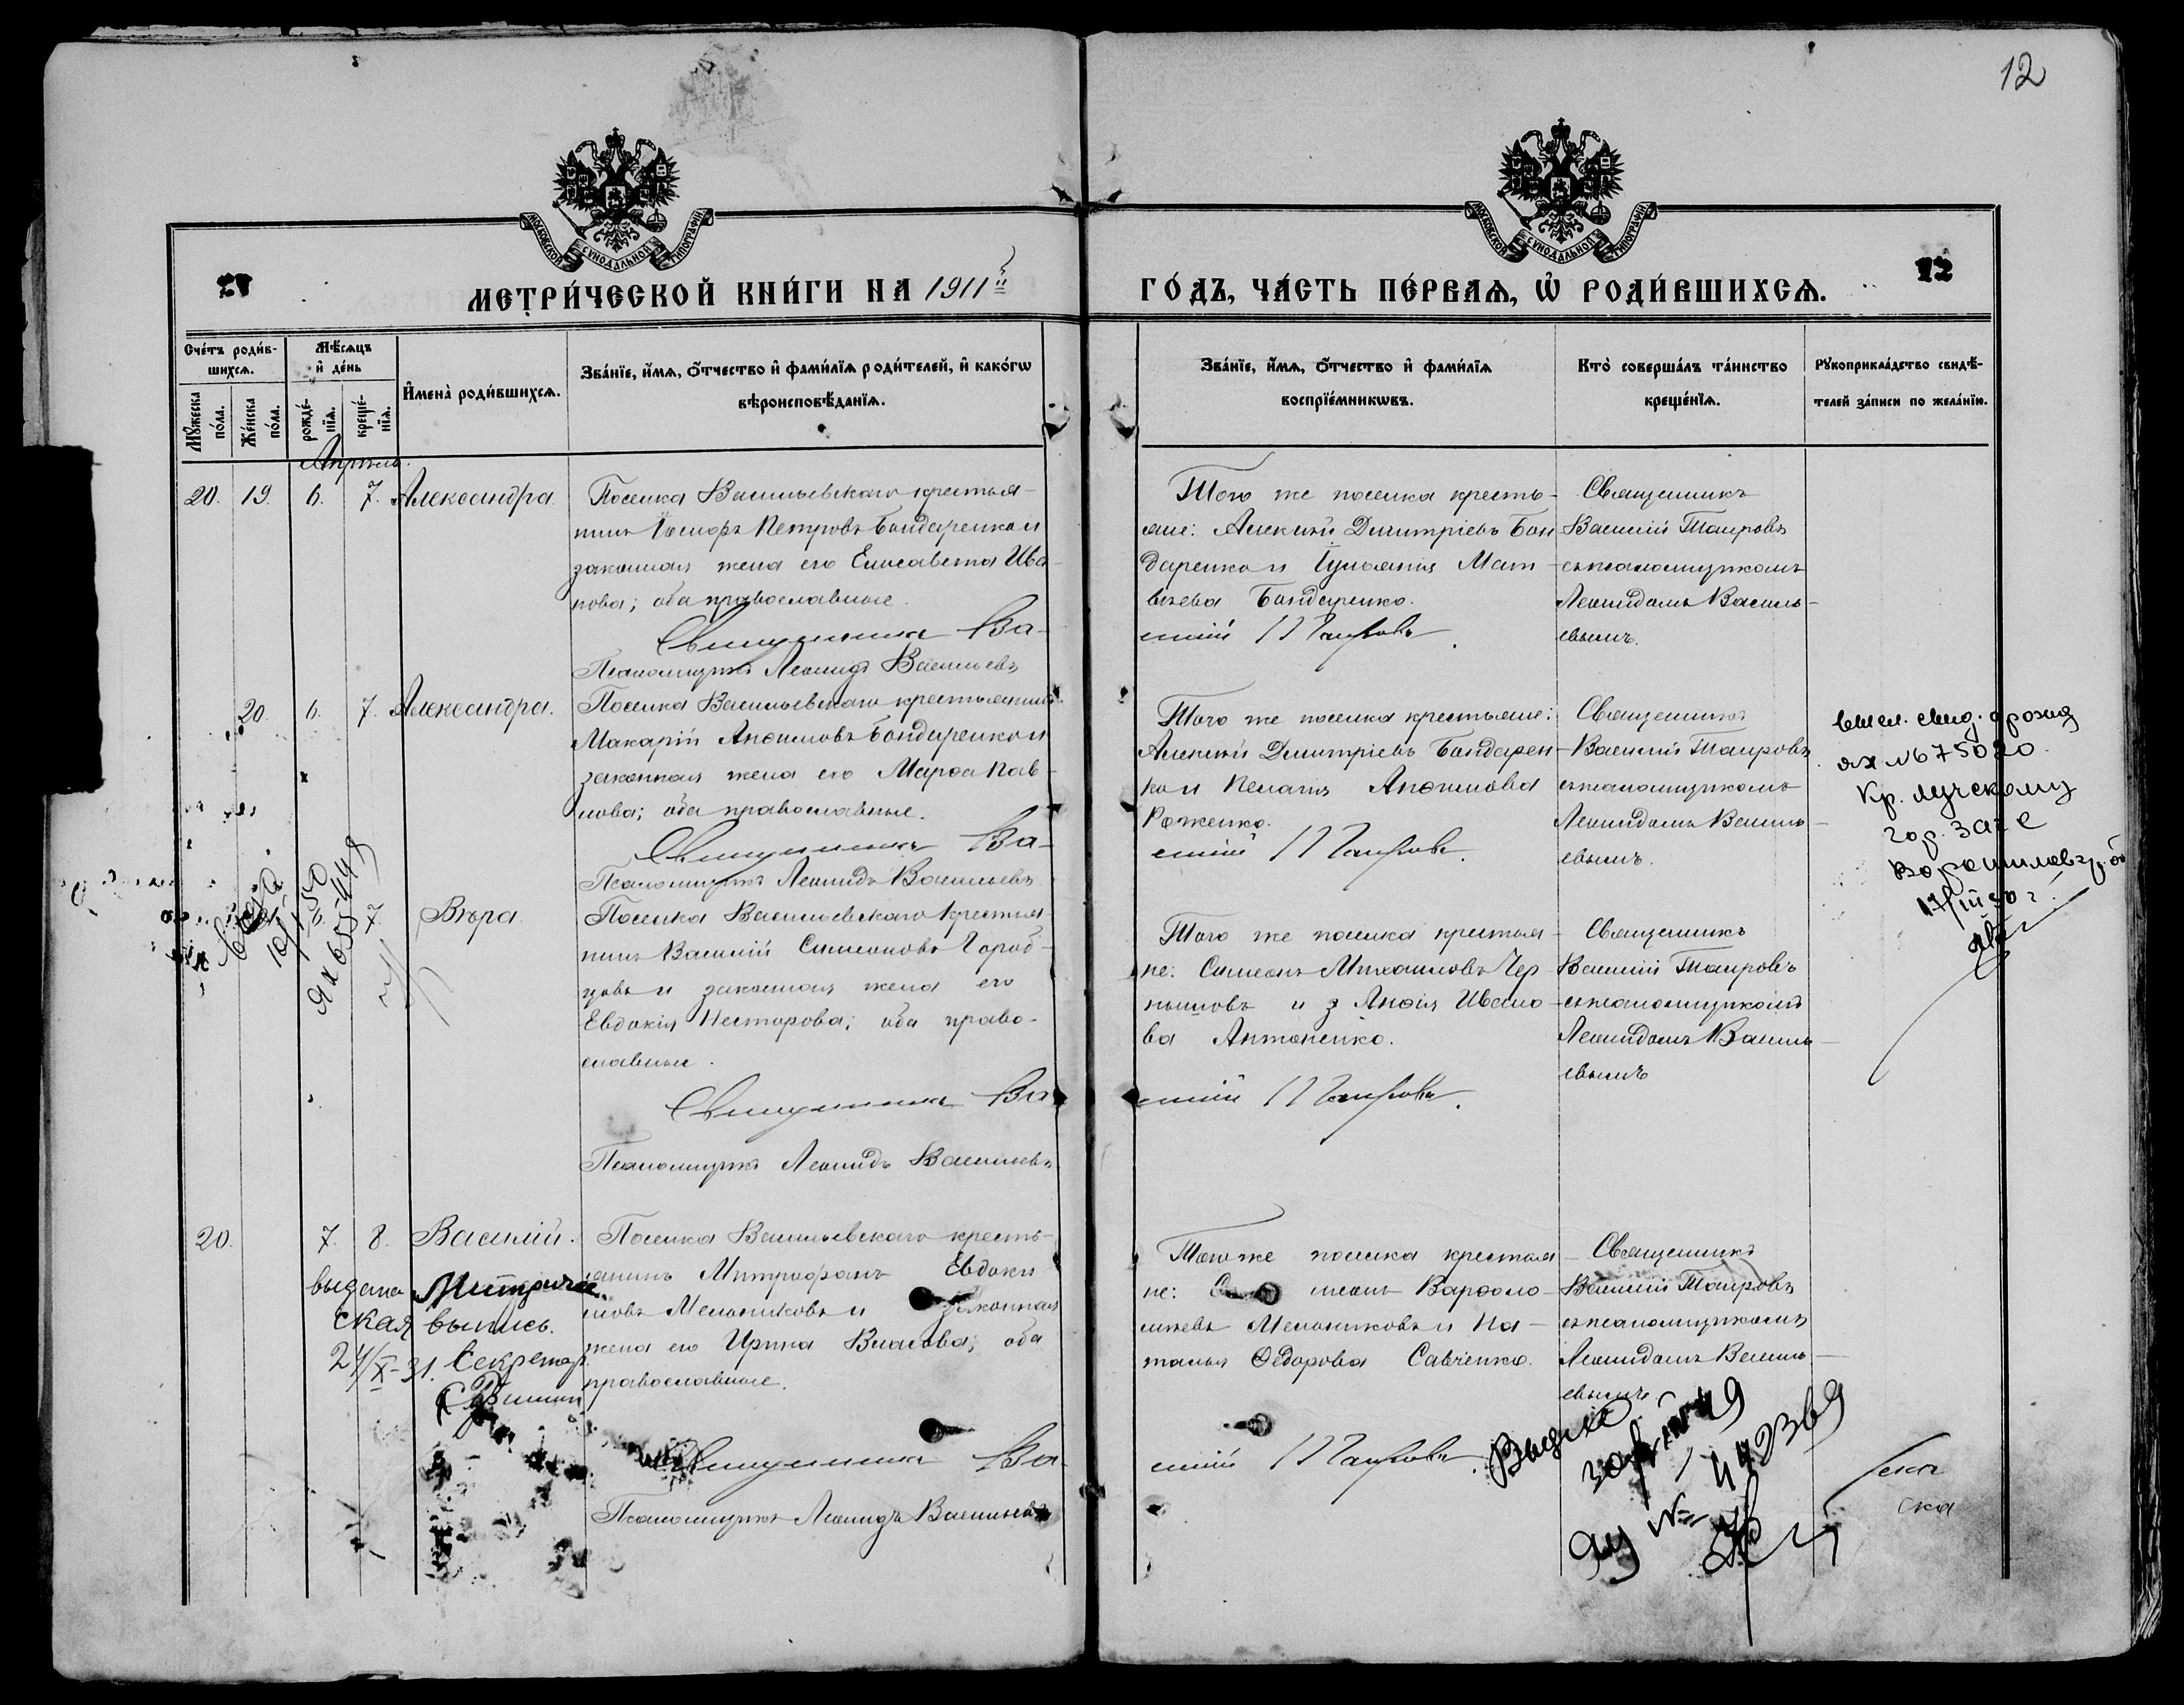 12
МОСКОВСКОЙ СѴНОДАЛЬНОЙ ТИПОГРАФІИ
МОСКОВСКОЙ СѴНОДАЛЬНОЙ ТИПОГРАФІИ
12
МЕТРИ́ЧЕСКОЙ КНИ́ГИ НА 1911й
ГО́ДЪ, ЧА́СТЬ ПЕ́РВАѦ, Ѽ РОДИ́ВШИХСѦ.
Сче́тъ роди́в-
шихсѧ.
Мꙋ́жеска
по́ла.
Же́нска
по́ла.
Мѣ́сѧцъ
и҆ де́нь
рожде́-
нїѧ.
креще́-
нїѧ.
И҆мена̀ роди́вшихсѧ.
Зва́нїе, и҆́мѧ, ѻ҆́тчество и҆ фами́лїѧ роди́телей, и҆ како́гѡ
вѣроисповѣ́данїѧ.
Зва́нїе, и҆́мѧ, ѻ҆́тчество и҆ фами́лїѧ
воспрїе́мникѡвъ.
Кто̀ соверша́лъ та́инство
креще́нїѧ.
Рꙋкоприкла́дство свидѣ́-
телей за́писи по жела́нїю.
Апрѣль.
20. 19. 6. 7. Александра.
Поселка Васильевскаго крестья-
нинъ Іосифъ Петровъ Бондаренко и
законная жена его Елисавета Ива-
нова; оба православные.
Священникъ Ва-
Псаломщикъ Леонидъ Васильевъ
Того же поселка кресть-
яне: Алексѣй Димитріевъ Бон
даренко и Іуліанія Мат-
вѣева Бондаренко.
силій Таировъ.
Священникъ
Василій Таировъ
съ псаломщикомъ
Леонидомъ Василь-
евымъ.
20. 6. 7. Александра.
Поселка Васильевскаго крестьянинъ
Макарій Анѳимовъ Бондаренко и
законная жена его Марѳа Пав-
лова; оба православные.
Священникъ Ва-
Псаломщикъ Леонидъ Васильевъ
Того же поселка крестьяне:
Алексѣй Димитріевъ Бондарен-
ко и Пелагія Анѳимова
Роженко.
силій Таировъ.
Священникъ
Василій Таировъ
съ псаломщикомъ
Леонидомъ Василь-
евымъ.
ЯХ №675020
Кр. лучскому
гор. загс
17/III 50 г.
10/I 50
ЯХ 655448
7. Вѣра.
Поселка Васильевскаго крестья-
нинъ Василій Симеоновъ Город-
цовъ и законная жена его
Евдокія Несторова; оба право-
славные.
Священникъ Ва-
Псаломщикъ Леонидъ Васильевъ
Того же поселка крестья-
не: Симеонъ Михаиловъ Чер
нышовъ и Анна Ивано-
ва Антоненко.
силій Таировъ.
Священникъ
Василій Таировъ
съ псаломщикомъ
Леонидомъ Василь-
евымъ
20. 7. 8. Василій.
выдана Метриче
ская выпись.
24/X-31. Секретар
Поселка Васильевскаго кресть-
янинъ Митрофанъ Евдоки
мовъ Мельниковъ и законная
жена его Ирина Власова; оба
православные.
Священникъ Ва-
Псаломщикъ Леонидъ Васильевъ
Того же поселка крестья-
не: Варѳоло-
меевъ Мельниковъ и На-
талья Ѳедорова Савченко.
силій Таировъ.
Священникъ
Василій Таировъ
съ псаломщикомъ
Леонидомъ Василь-
евымъ.
№ 442369
ска